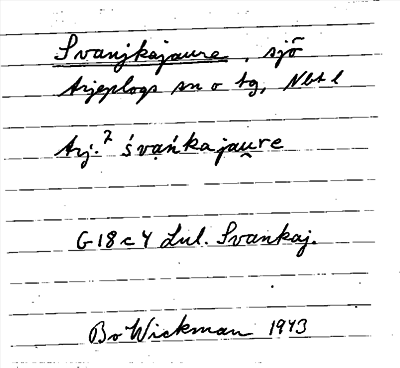 Svanjkajaure, sjö
Arjeplogs sn o tg, Nbt l
Arj.² śvạńkajau̯re
G 18 c Y Lul. Svankaj.
Bo Wickman 1943